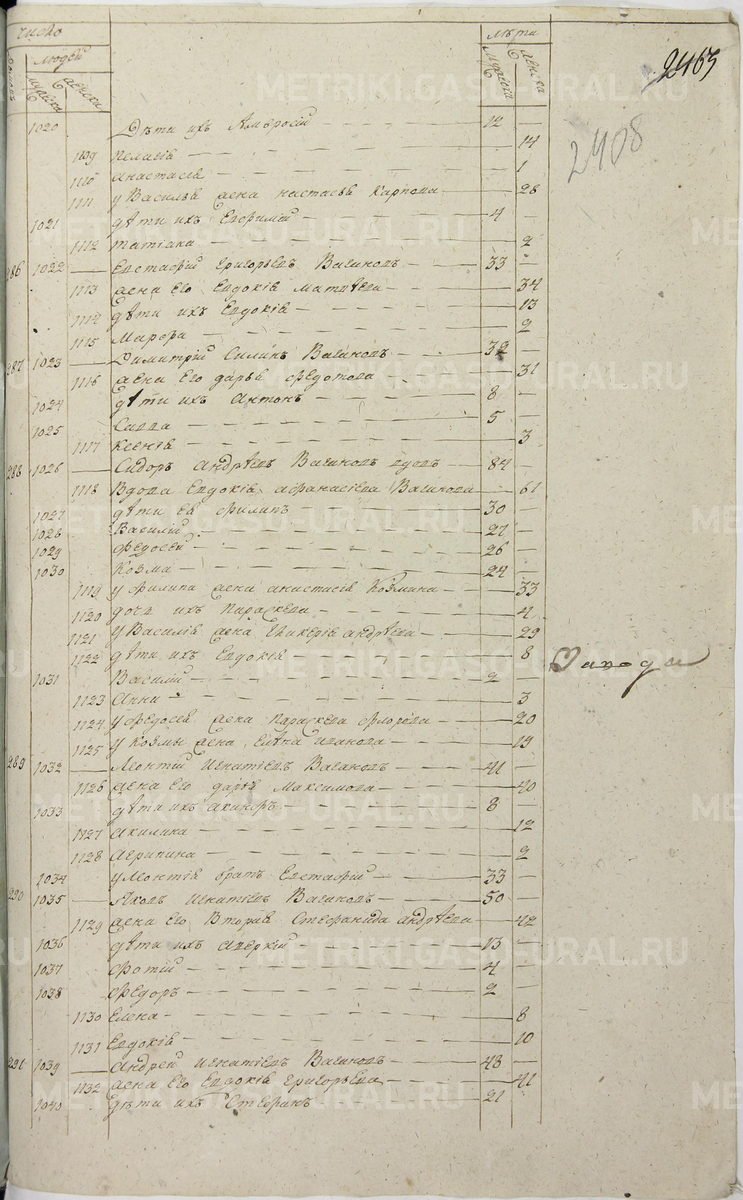 число
людей
лѣта
мужеска
женска
мужеска
женска
2463
2408
1020 Дѣти ихъ Амвросий 12
1109 пелагія 14
1110 анастасія 1
1111 у Василья жена настасья Карпова 28
1021 дѣти ихъ Ефримий 4
1112 татіана 2
286 1022 Евстафий григорьевъ Вагановъ 33
1113 жена его Евдокія Матвѣева 34
1114 дѣти ихъ Евдокія 13
1115 Марфа 2
287 1023 Димитрий Силинъ Вагановъ 32
1116 жена его дарья федотова 31
1024 дѣти ихъ Антонъ 8
1025 Савва 5
1117 Ксенія 3
288 1026 Сидоръ андрѣевъ Вагановъ вдовъ 84
1118 Вдова Евдокія афанасіева Ваганова 61
1027 дѣти ея филипъ 30
1028 Василий 27
1029 федосей 26
1030 Козма 24
1119 у филипа жена анастасія Козмина 33
1120 дочь ихъ параскева 4
1121 у Василія жена гликерія андрѣева 29
1122 дѣти ихъ Евдокія 8
1031 Василий 2
1123 Анна 3
1124 у федосея жена параскева фролова 20
1125 у Козмы жена Елена иванова 19
289 1032 Леонтий игнатіевъ Вагановъ 41
1126 жена его дарья Максимова 40
1033 дѣти ихъ никифоръ 8
1127 акилина 12
1128 агрипина 2
1034 у Леонтія братъ Евстафий 33
290 1035 Яковъ игнатіевъ Вагановъ 50
1129 жена его Вторая Стефанида андрѣева 42
1036 дѣти ихъ аверкий 13
1037 фотий 4
1038 федоръ 2
1130 Елена 8
1131 Евдокія 10
291 1039 Андрей игнатіевъ Вагановъ 43
1132 жена его Евдокія григорьева 41
1040 дѣти ихъ Стефанъ 21
METRIKI.GASO-URAL.RU